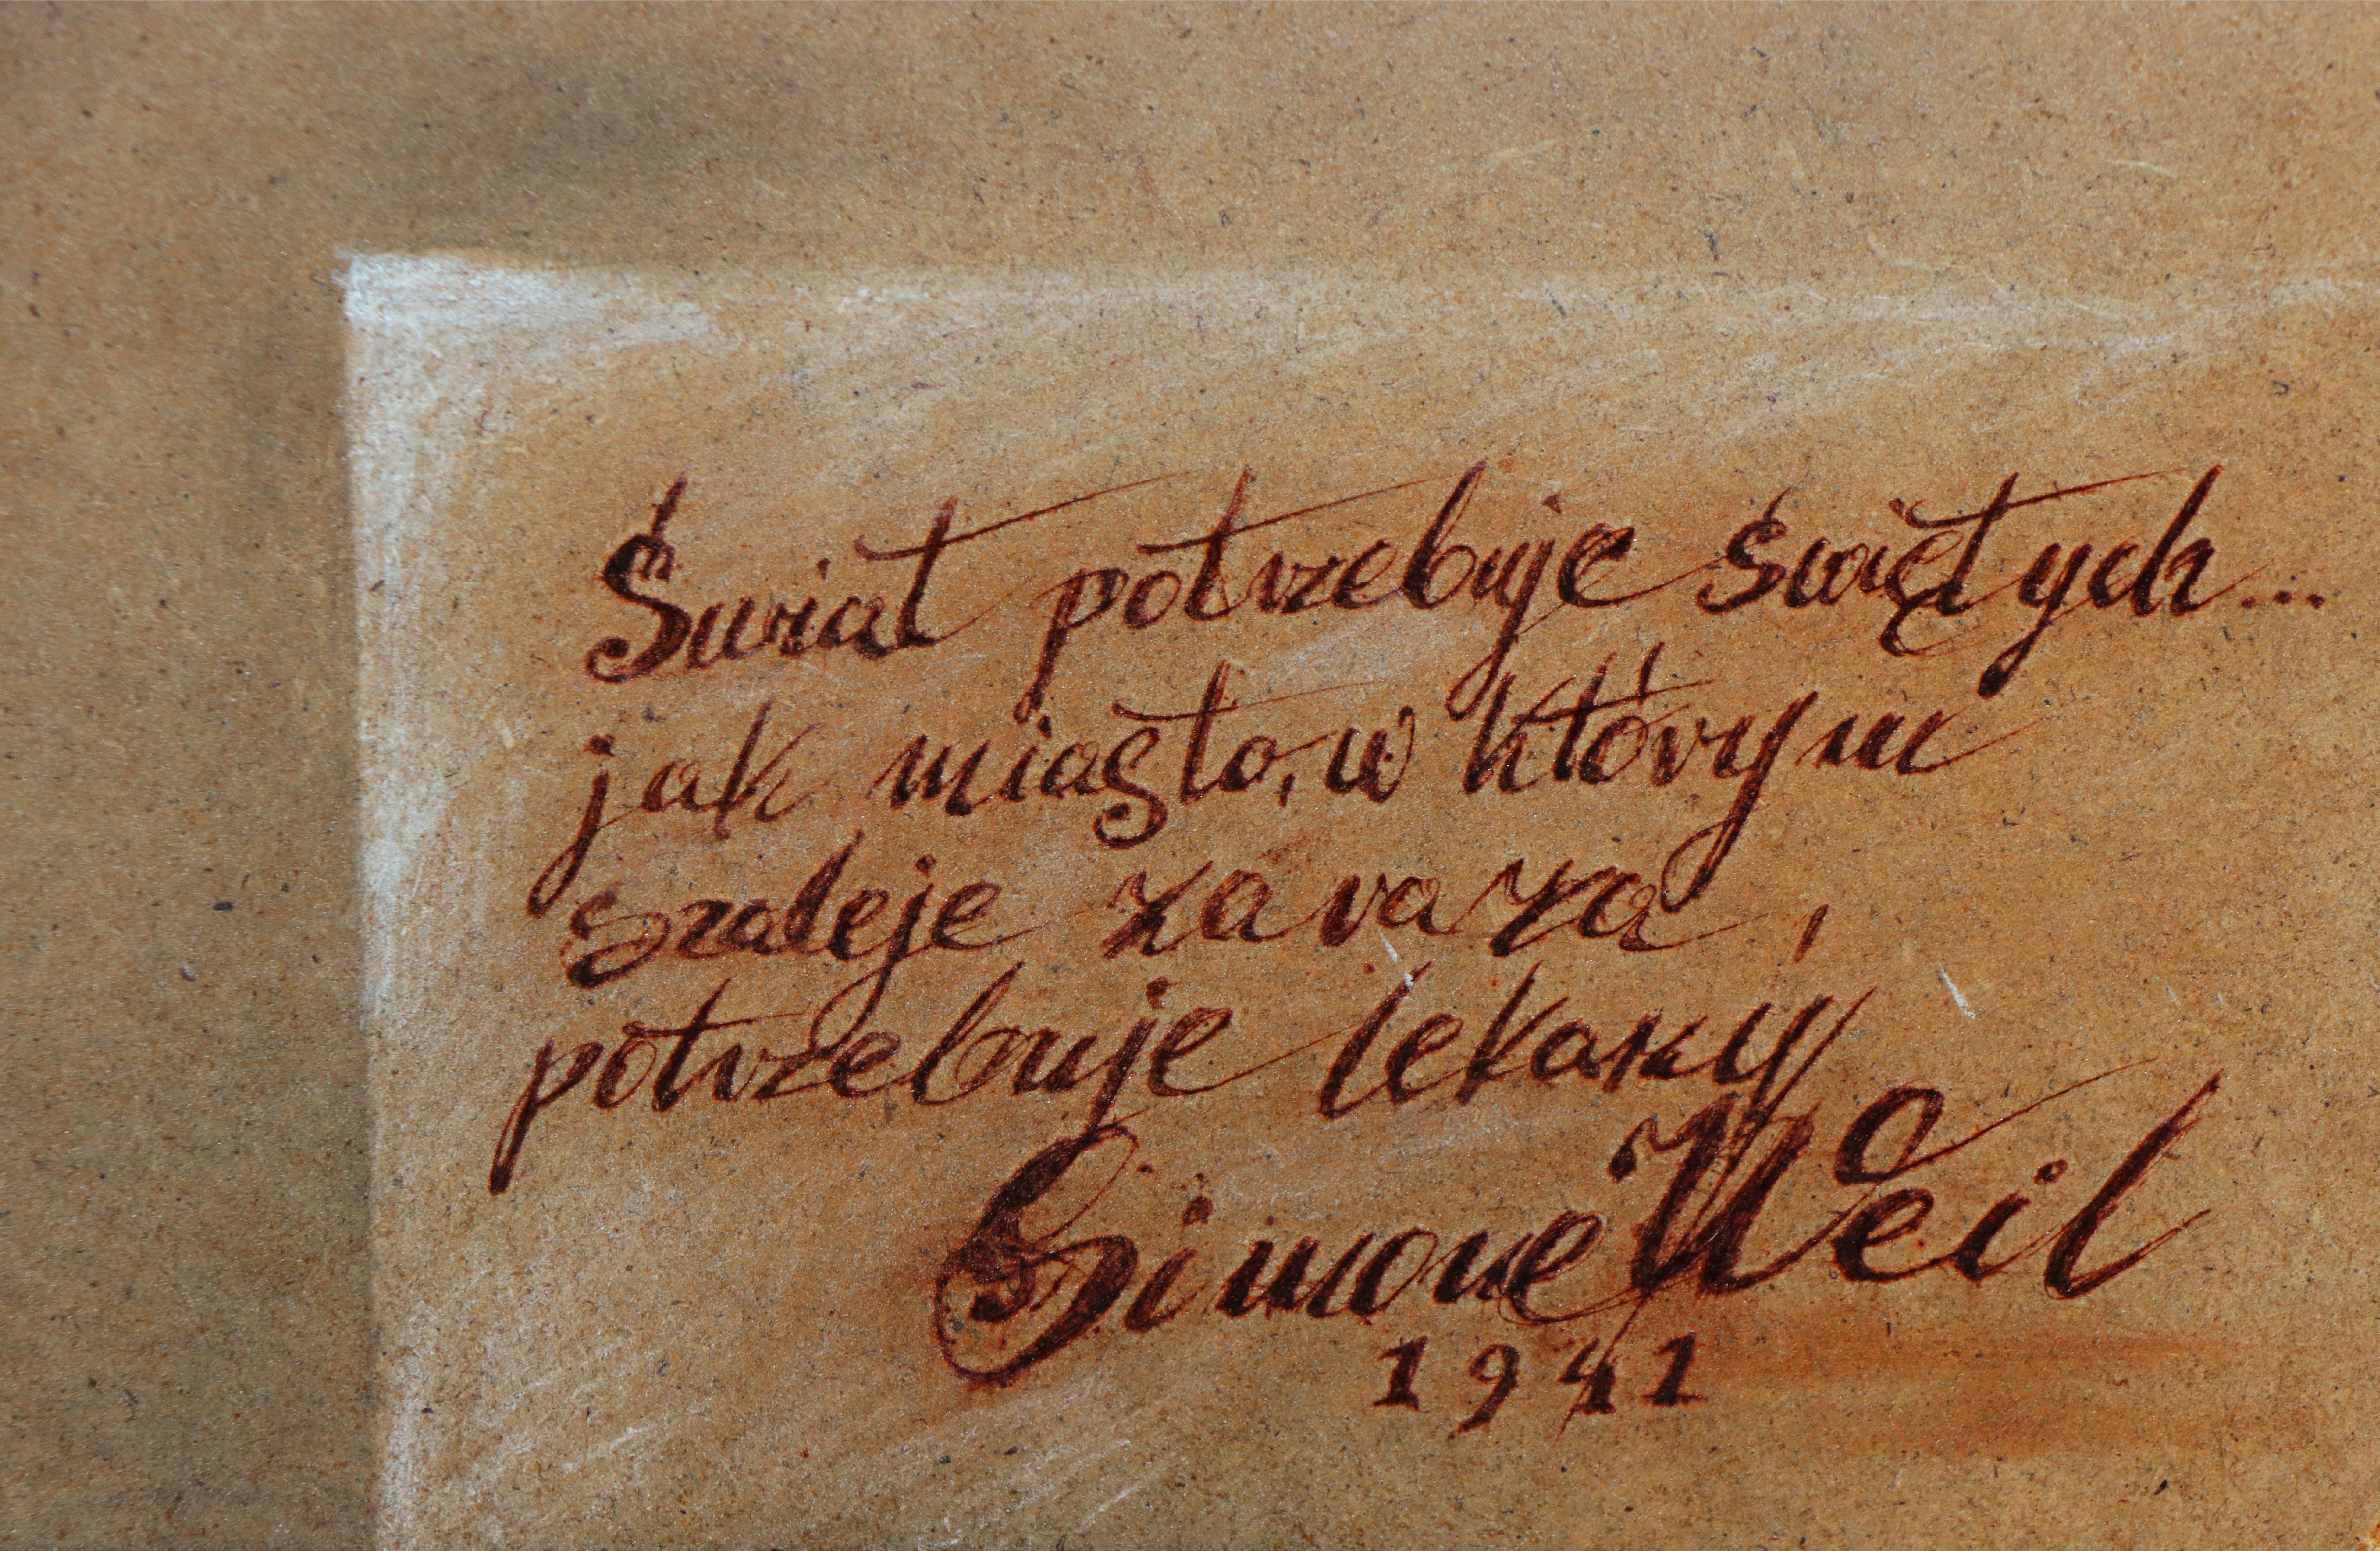 Świat potrzebuje świętych...
jak miasto, w którym
szaleje zaraza,
potrzebuje lekarzy
Simone Weil
1941